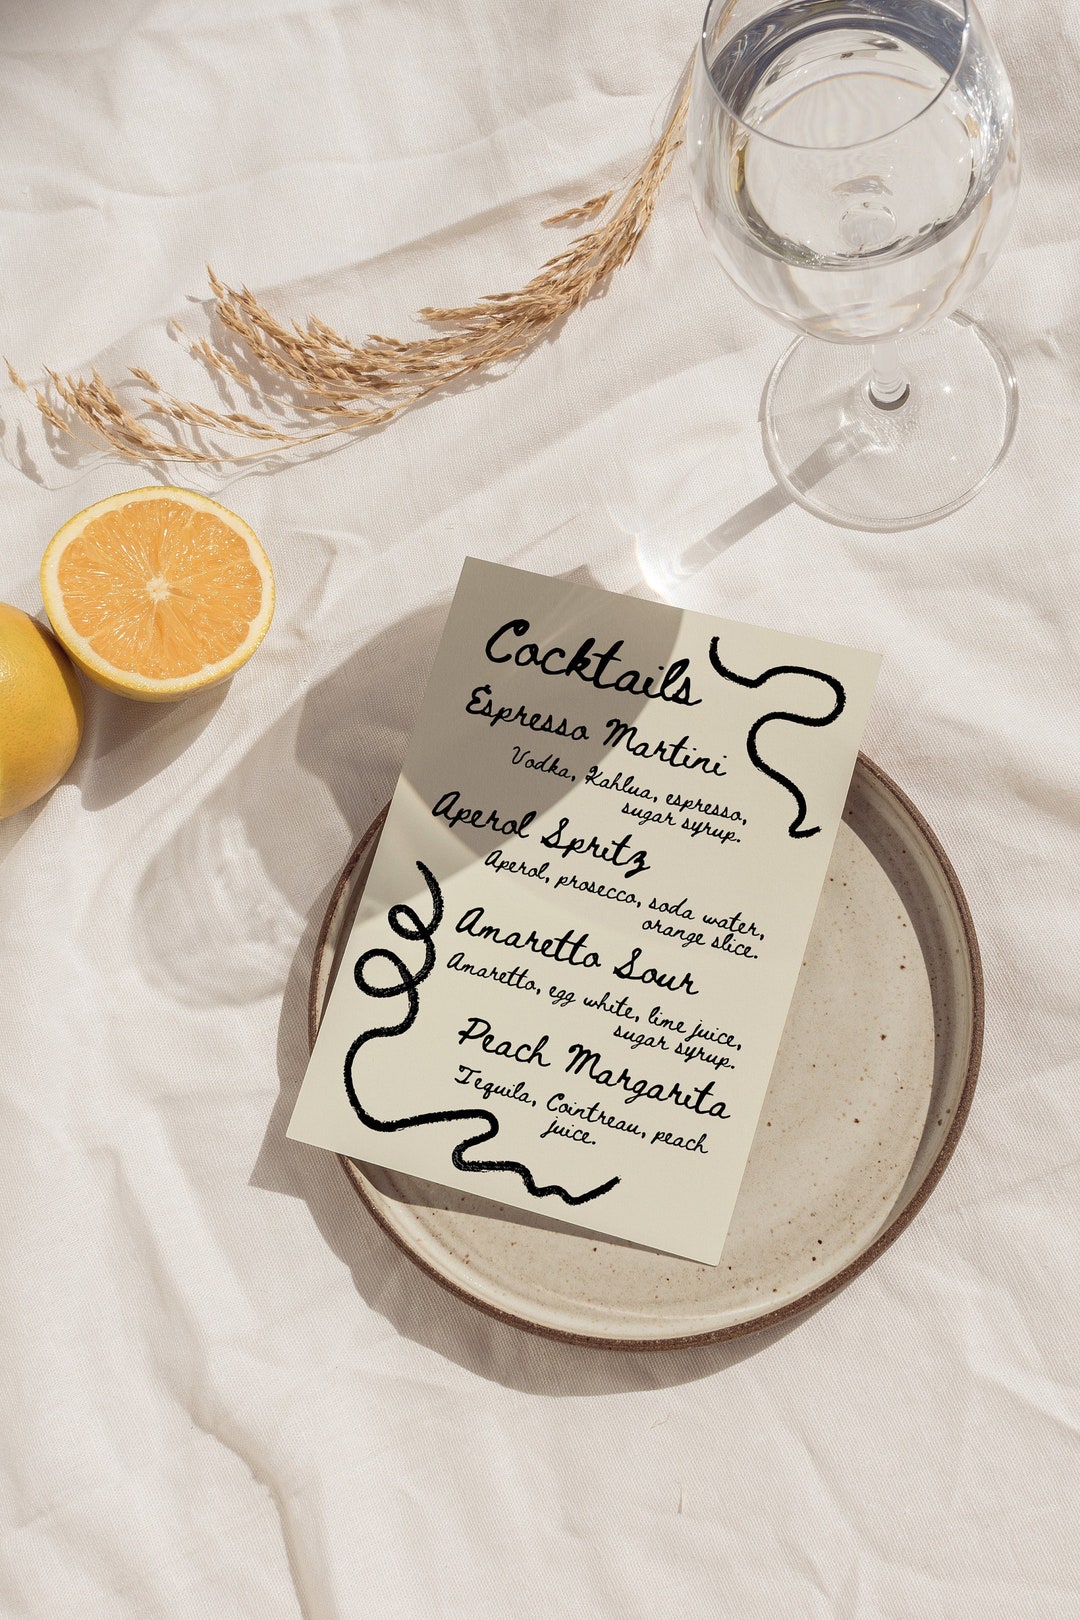 Cocktails
Espresso Martini
Vodka, Kahlua, espresso,
sugar syrup.
Aperol Spritz
Aperol, prosecco, soda water,
orange slice.
Amaretto Sour
Amaretto, egg white, lime juice,
sugar syrup.
Peach Margarita
Tequila, Cointreau, peach
juice.